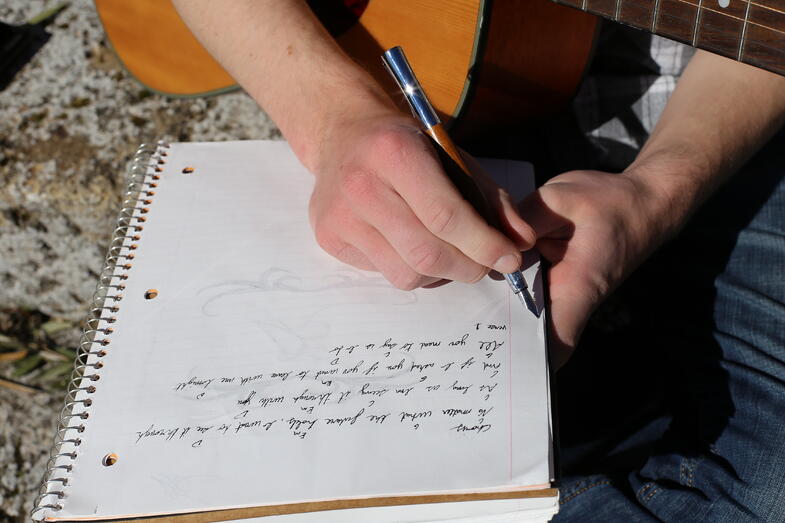 verse 1
All you need to say is
G C D
And if I asked you if you want to leave with me tonight
C G Em D
As long as Im seeing it through with you
C Em D
No matter what the future holds, I want to see it through
C G Em D
Chorus